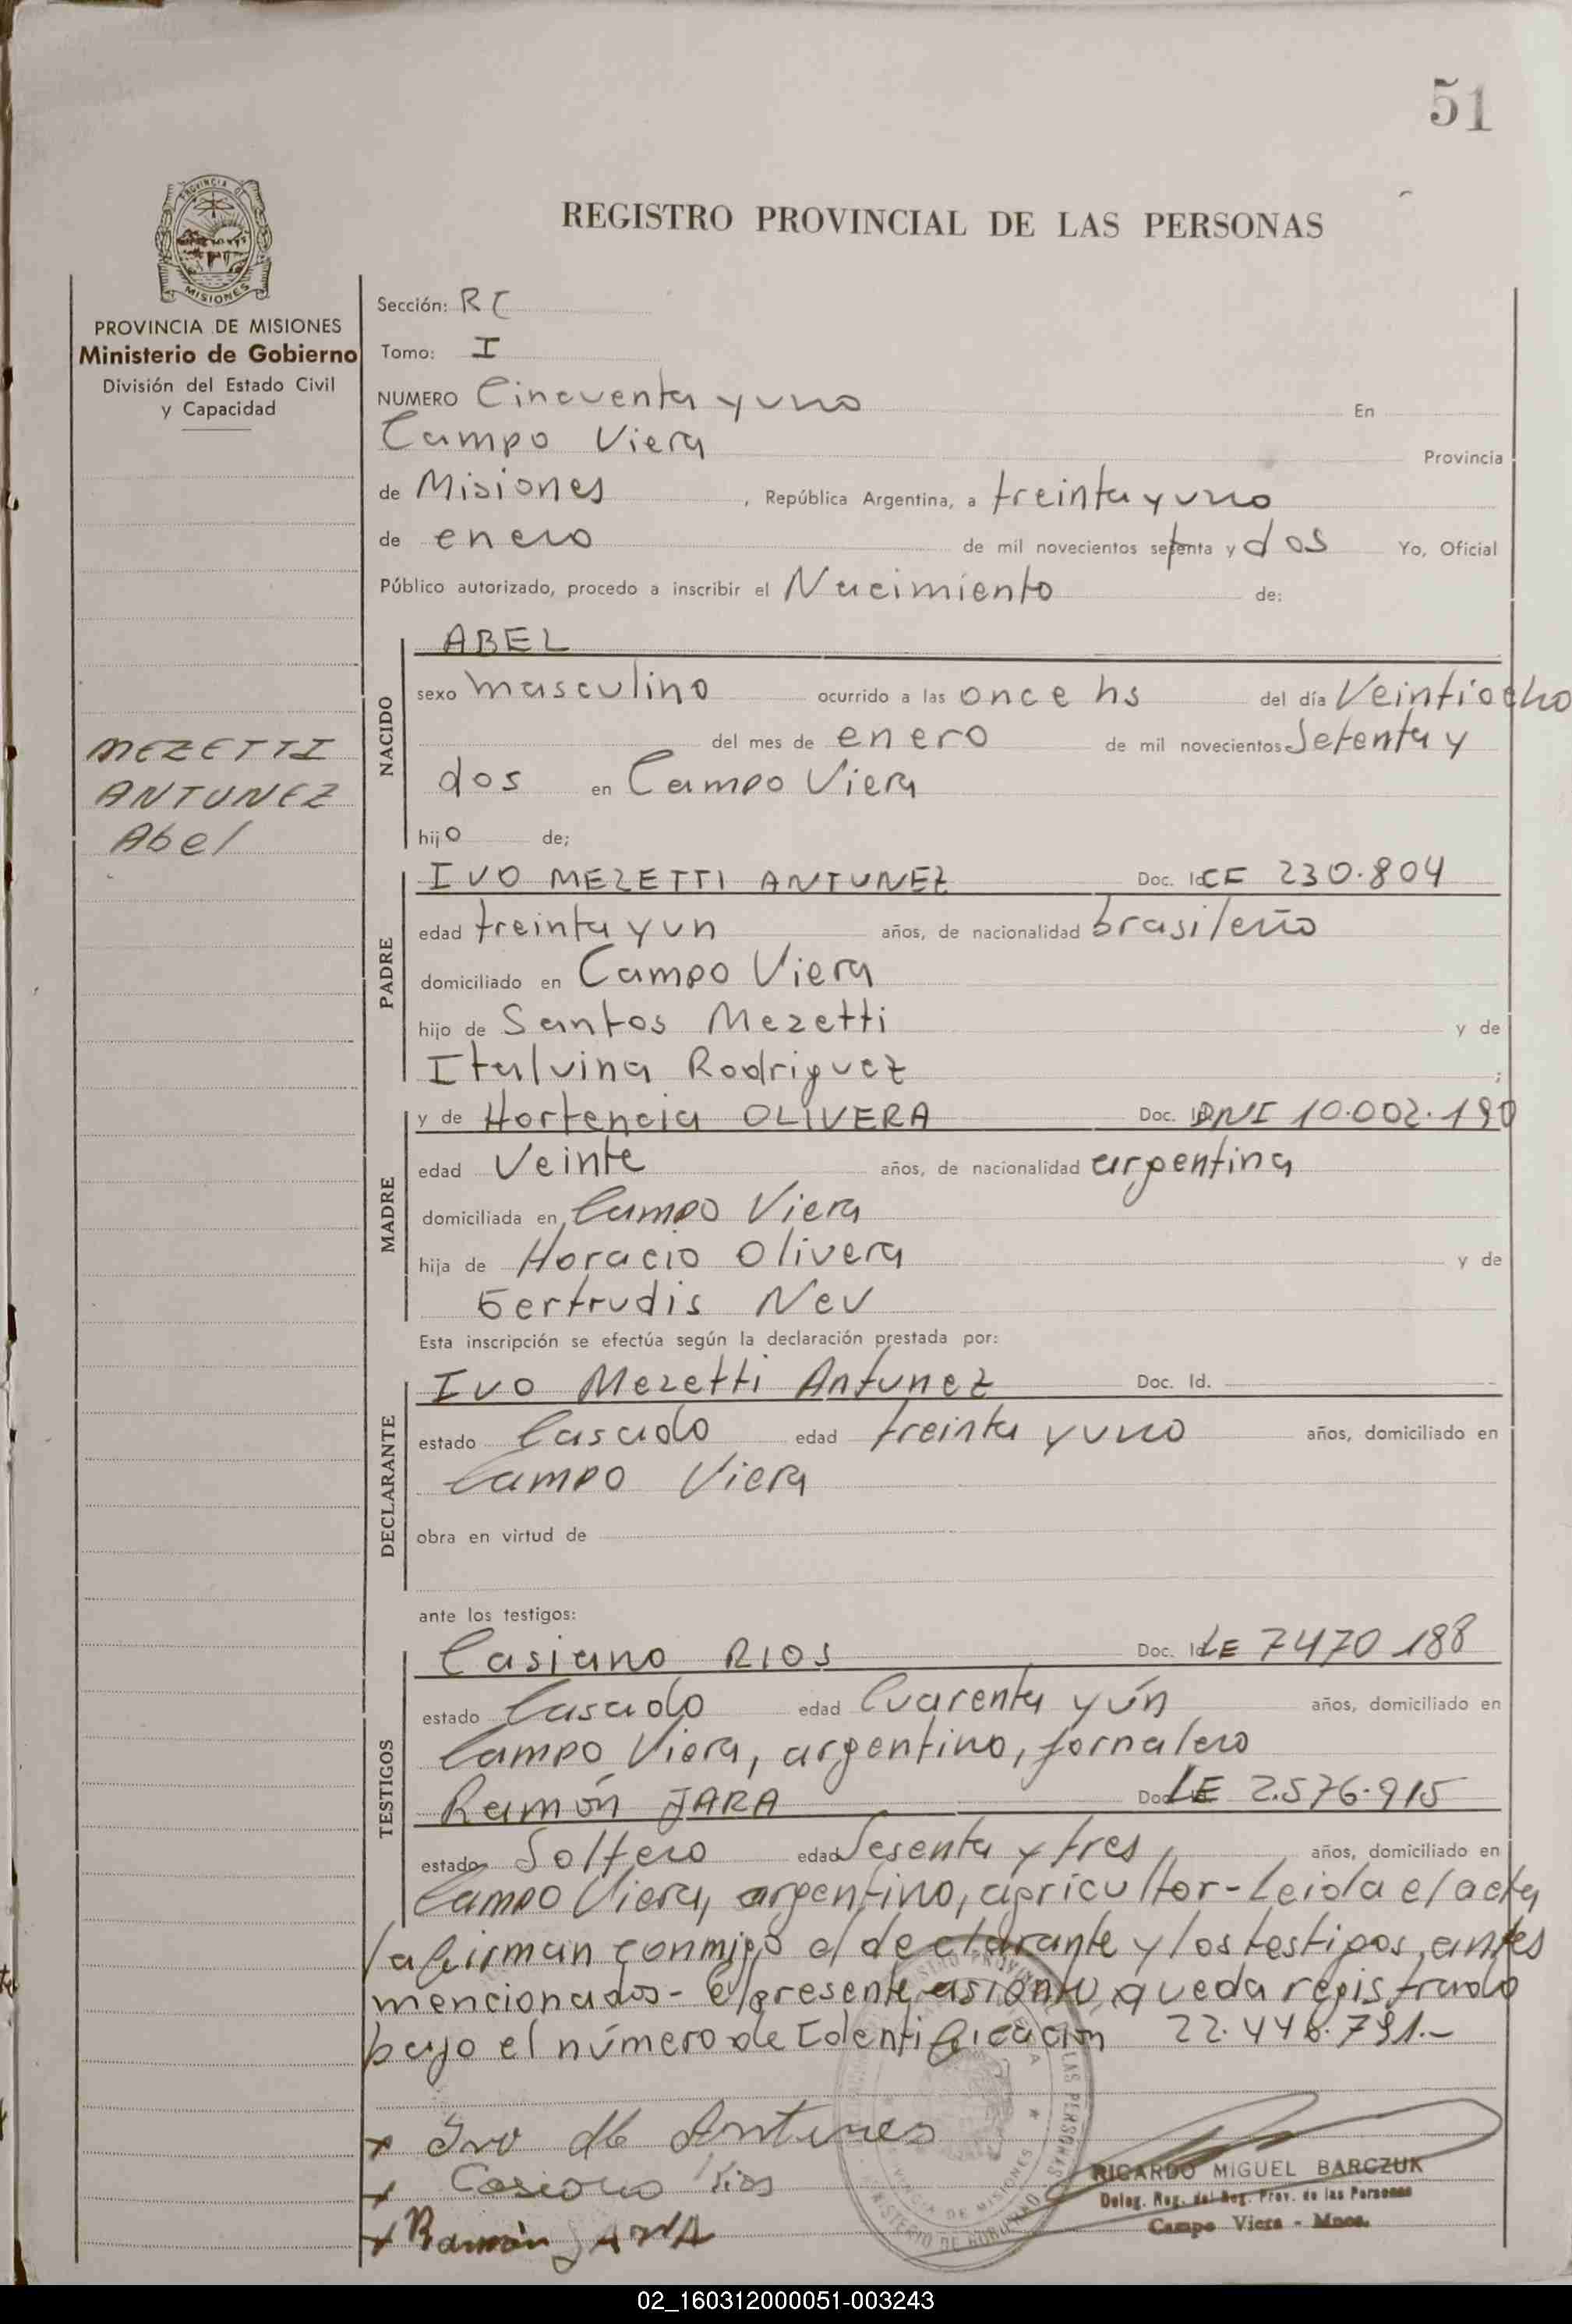 51
PROVINCIA DE MISIONES
REGISTRO PROVINCIAL DE LAS PERSONAS
PROVINCIA DE MISIONES
Ministerio de Gobierno
División del Estado Civil
y Capacidad
MEZETTI
ANTUNEZ
Abel
Sección: RC
Tomo: I
NUMERO Cincuenta y uno En
Campo Viera Provincia
de Misiones, República Argentina, a treinta y uno
de enero de mil novecientos setenta y dos Yo, Oficial
Público autorizado, procedo a inscribir el Nacimiento de:
NACIDO
ABEL
sexo masculino ocurrido a las once hs del día Veintiocho
del mes de enero de mil novecientos Setenta y
dos en Campo Viera
hijo de;
PADRE
IVO MEZETTI ANTUNEZ Doc. Id. CF 230.804
edad treinta y un años, de nacionalidad brasileño
domiciliado en Campo Viera
hijo de Santos Mezetti y de
Italvina Rodriguez ;
MADRE
y de Hortencia OLIVERA Doc. Id. DNI 10.002.190
edad Veinte años, de nacionalidad argentina
domiciliada en Campo Viera
hija de Horacio Olivera y de
Gertrudis Neu
Esta inscripción se efectúa según la declaración prestada por:
DECLARANTE
Ivo Mezetti Antunez Doc. Id.
estado Casado edad treinta y uno años, domiciliado en
Campo Viera
obra en virtud de
ante los testigos:
TESTIGOS
Casiano RIOS Doc. Id. LE 7470188
estado Casado edad Cuarenta y ún años, domiciliado en
Campo Viera, argentino, jornalero
Ramón JARA Doc. LE 2.576.915
estado Soltero edad Sesenta y tres años, domiciliado en
Campo Viera, argentino, agricultor - Leida el acta
la firman conmigo el declarante y los testigos, antes
mencionados - El presente asiento, queda registrado
bajo el número de Identificación 22.446.791.-
Ivo Antunes
Casiano Rios
Ramón JARA
RICARDO MIGUEL BARCZUK
Deleg. Reg. del Reg. Prov. de las Personas
Campo Viera - Mnes.
02_160312000051-003243